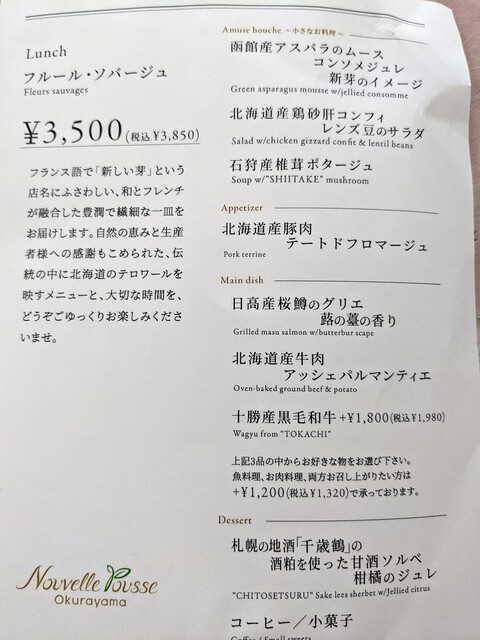 Lunch
フルール・ソバージュ
Fleurs sauvages
¥3,500(税込¥3,850)
フランス語で「新しい芽」という
店名にふさわしい、和とフレンチ
が融合した豊潤で繊細な一皿を
お届けします。自然の恵みと生産
者様への感謝もこめられた、伝
統の中に北海道のテロワールを
映すメニューと、大切な時間を、
どうぞごゆっくりお楽しみくださ
いませ。
Nouvelle Pousse
Okurayama
Amuse bouche ～小さなお料理～
函館産アスパラのムース
コンソメジュレ
新芽のイメージ
Green asparagus mousse w/jellied consomme
北海道産鶏砂肝コンフィ
レンズ豆のサラダ
Salad w/chicken gizzard confit & lentil beans
石狩産椎茸ポタージュ
Soup w/"SHIITAKE" mushroom
Appetizer
北海道産豚肉
テートドフロマージュ
Pork terrine
Main dish
日高産桜鱒のグリエ
蕗の薹の香り
Grilled masu salmon w/butterbur scape
北海道産牛肉
アッシェパルマンティエ
Oven-baked ground beef & potato
十勝産黒毛和牛+¥1,800(税込¥1,980)
Wagyu from "TOKACHI"
上記3品の中からお好きな物をお選び下さい。
魚料理、お肉料理、両方お召し上がりたい方は
+¥1,200(税込¥1,320)で承っております。
Dessert
札幌の地酒「千歳鶴」の
酒粕を使った甘酒ソルベ
柑橘のジュレ
"CHITOSETSURU" Sake lees sherbet w/Jellied citrus
コーヒー／小菓子
Coffee / Small sweets